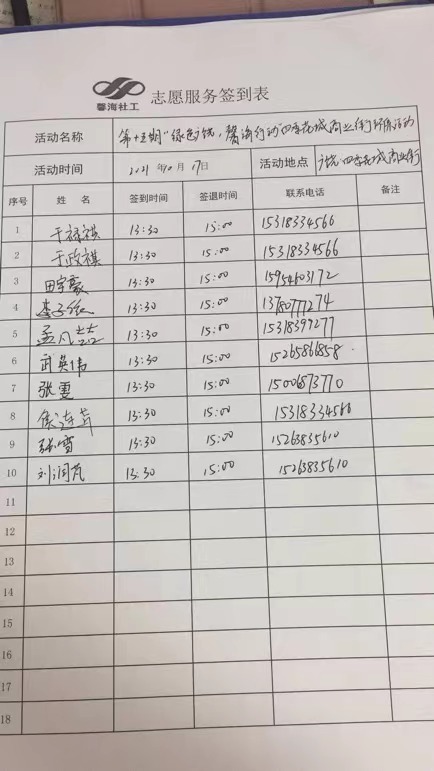 馨海社工 志愿服务签到表
活动名称 第十五期"绿色 馨海行动"四季花城商业街 活动
活动时间 2021年10月17日 活动地点 四季花城商业街
序号 姓 名 签到时间 签退时间 联系电话 备注
1 于禄祺 13:30 15:00 15318334566
2 于政祺 13:30 15:00 15318334566
3 田宇豪 13:30 15:00 15954603172
4 李子 13:30 15:00 13780777274
5 孟凡喆 13:30 15:00 15318399277
6 武英伟 13:30 15:00 15265861858
7 张雯 13:30 15:00 15006573770
8 侯连芹 13:30 15:00 15318334566
9 张雪 13:30 15:00 15263835610
10 刘润芃 13:30 15:00 15263835610
11
12
13
14
15
16
17
18